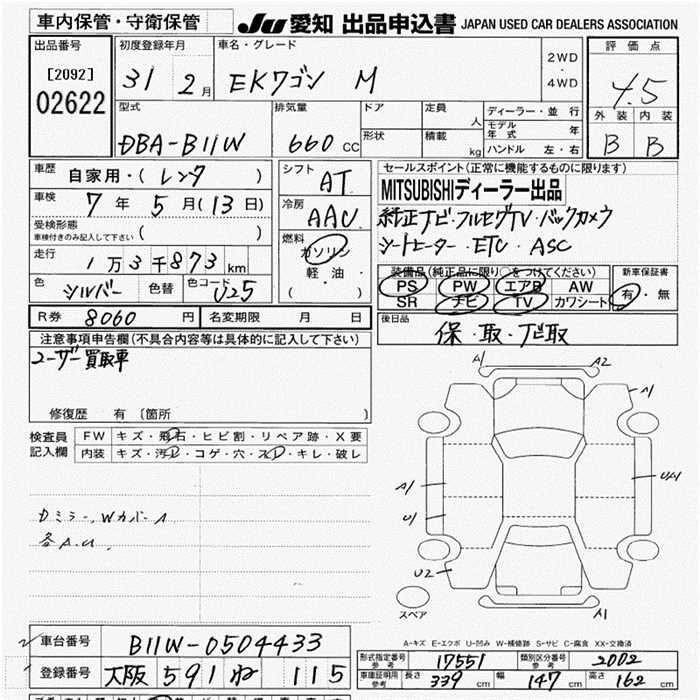 車内保管・守衛保管
JU 愛知 出品申込書 JAPAN USED CAR DEALERS ASSOCIATION
出品番号 初度登録年月 車名・グレード 2WD・4WD 評価点
[2092] 02622 31 2月 EKワゴン M 4.5
型式 排気量 ドア 定員 人 ディーラー・並行 外装 内装
DBA-B11W 660 CC 形状 積載 kg モデル年式 年 B B
ハンドル 左・右
車歴 自家用・( レンタ )
シフト AT
セールスポイント(正常に機能するものに限ります)
MITSUBISHIディーラー出品
車検 7年 5月(13日)
冷房 AAC
純正ナビ・フルセグTV・バックカメラ
シートヒーター・ETC・ASC
受検形態 ( )
車検付きのみ記入して下さい
燃料 ガソリン・軽油・( )
走行 1万3千873km
装備品(純正品に限り○をつけてください) 新車保証書
PS PW エアB AW 有・無
SR ナビ TV カワシート
色 シルバー 色替 色コード U25
R券 8060円 名変期限 月 日
後日品
保・取・ナビ取
注意事項申告欄(不具合内容等は具体的に記入して下さい)
ユーザー買取車
修復歴 有 (箇所 )
検査員記入欄 FW キズ・飛石・ヒビ割・リペア跡・X要
内装 キズ・汚レ・コゲ・穴・スレ・キレ・破レ
Dミラー、Wカバー A
各A.U.
A1 A2
A1
A1 UA1
U1
U2
スペア
A1
A-キズ E-エクボ U-凹み W-補修跡 S-サビ C-腐食 XX-交換済
車台番号 B11W-0504433
登録番号 大阪 591 ね 115
形式指定番号 参考 17551 類別区分番号 参考 2002
車庫証明用 参考 長さ 339 cm 幅 147 cm 高さ 162 cm